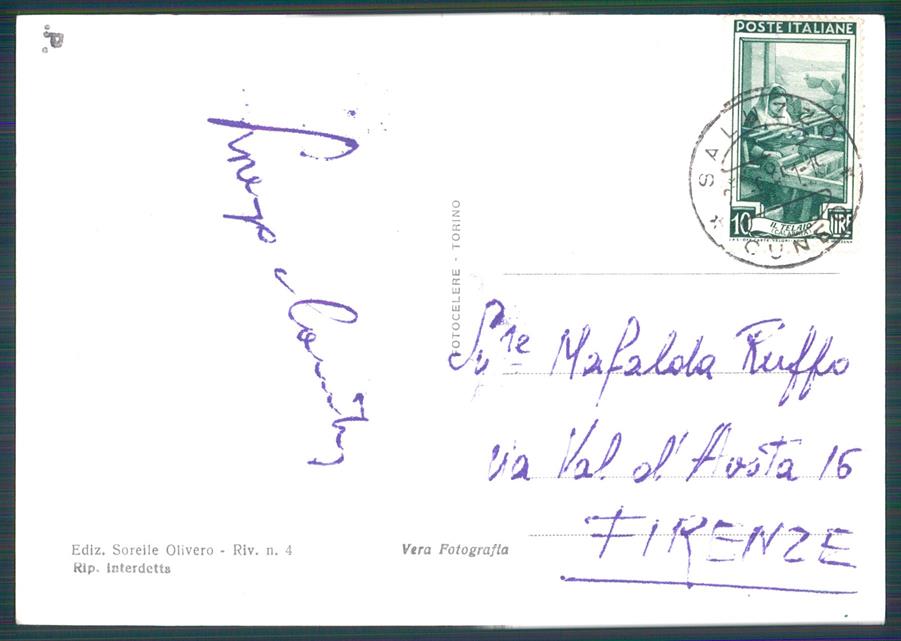 POSTE ITALIANE
10
LIRE
IL TELAIO
SALUZZO
CUNEO
FOTOCELERE - TORINO
Mafalda Ruffo
via Val d'Aosta 16
FIRENZE
Ediz. Sorelle Olivero - Riv. n. 4
Rip. interdetta
Vera Fotografia